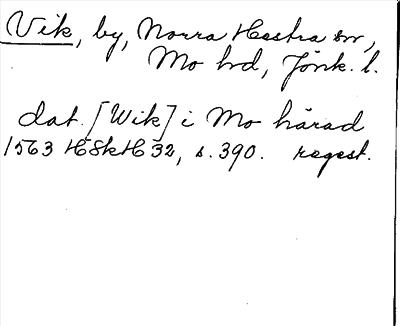 Vik, by, Norra Hestra sn,
Mo hd, Jönk. l.
dat. [Wik] i Mo härad
1563 HSkH 32, s. 390. regest.